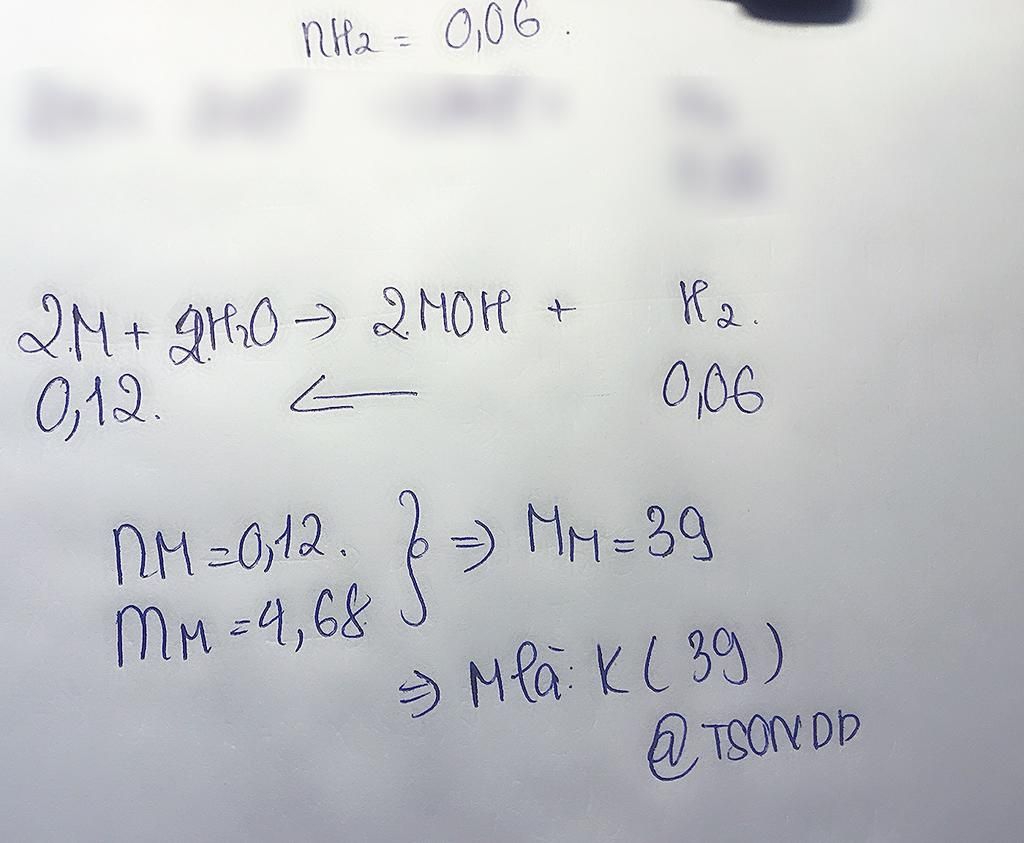 nH2 = 0,06.
2M + 2H2O → 2MOH + H2.
0,12. ← 0,06
nM = 0,12. } ⇒ MM = 39
mM = 4,68
⇒ M là: K (39)
@TSONDD